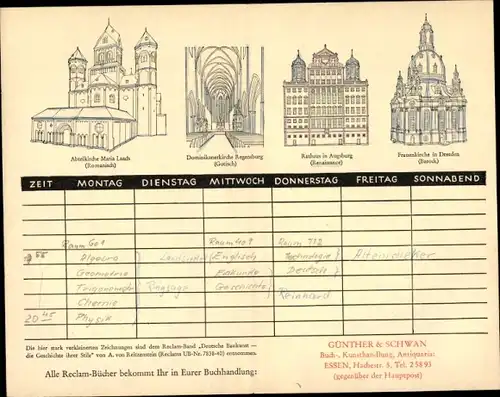 Abteikirche Maria Laach
(Romanisch)
Dominikanerkirche Regensburg
(Gotisch)
Rathaus in Augsburg
(Renaissance)
Frauenkirche in Dresden
(Barock)
ZEIT MONTAG DIENSTAG MITTWOCH DONNERSTAG FREITAG SONNABEND
Raum Raum Raum 712
Algebra Englisch Technologie
Geometrie Erdkunde Deutsch
Geschichte Reinhard
Chemie
20 45 Physik
Die hier stark verkleinerten Zeichnungen sind dem Reclam-Band „Deutsche Baukunst —
die Geschichte ihrer Stile" von A. von Reitzenstein (Reclams UB-Nr. 7838-42) entnommen.
Alle Reclam-Bücher bekommt Ihr in Eurer Buchhandlung:
GÜNTHER & SCHWAN
Buch-, Kunsthandlung, Antiquariat
ESSEN, Hachestr. 3, Tel. 2 58 93
(gegenüber der Hauptpost)